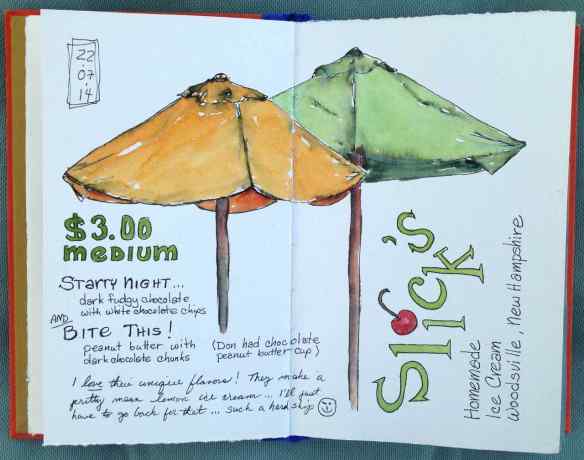 22
·07
·14
$3.00
medium
Starry Night...
dark fudgy chocolate
with white chocolate chips
AND
Bite This!
peanut butter with
dark chocolate chunks
(Don had chocolate
peanut butter cup)
I love their unique flavors! They make a
pretty mean lemon ice cream ... I'll just
have to go back for that ... such a hardship
Slick's
Homemade
Ice Cream
Woodsville, New Hampshire